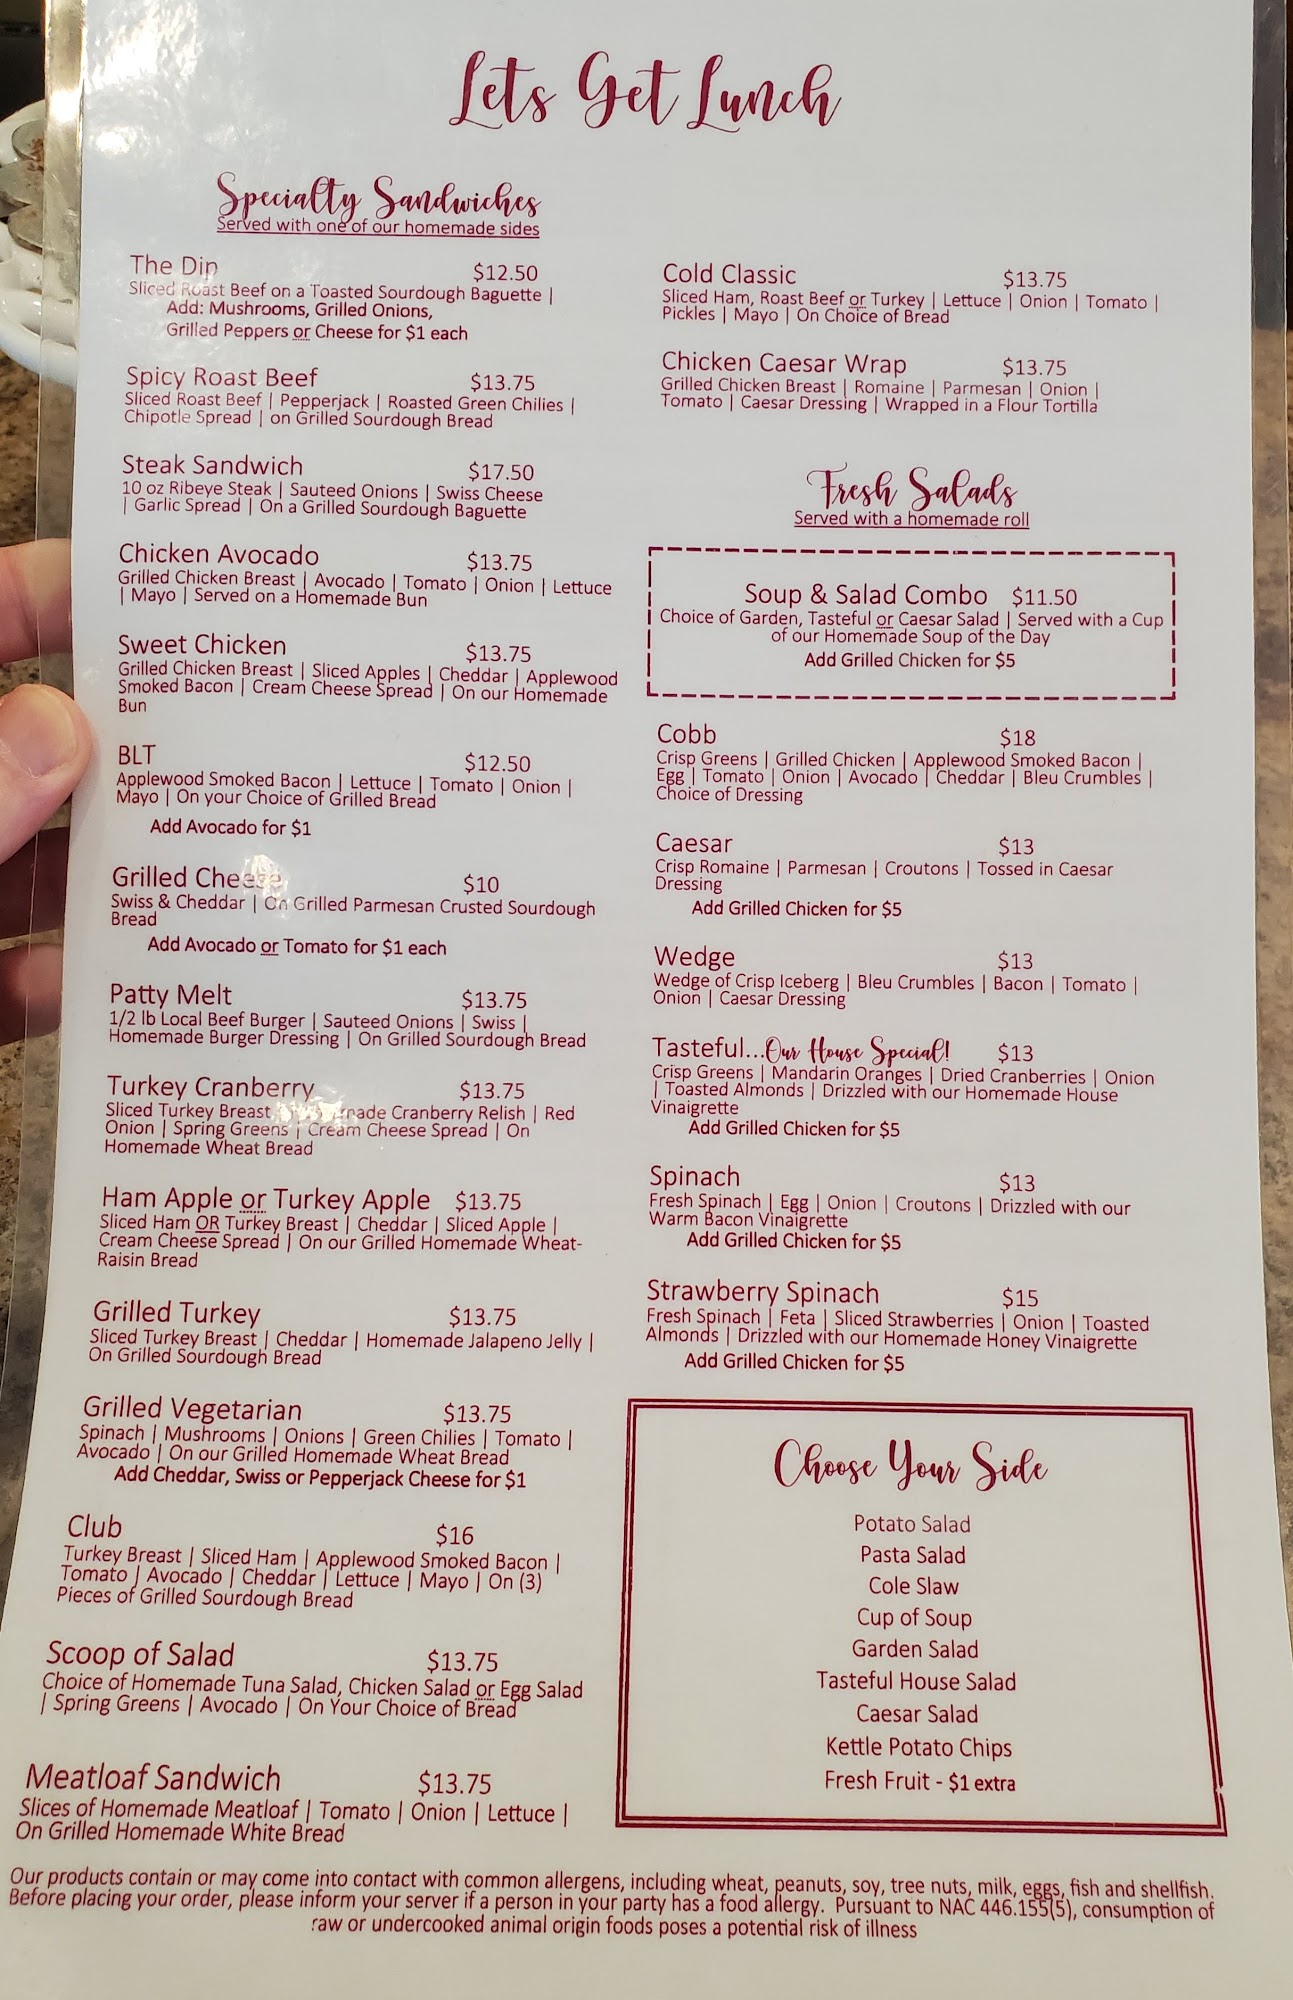 Lets Get Lunch
Specialty Sandwiches
Served with one of our homemade sides
The Dip $12.50
Sliced Roast Beef on a Toasted Sourdough Baguette |
Add: Mushrooms, Grilled Onions,
Grilled Peppers or Cheese for $1 each
Spicy Roast Beef $13.75
Sliced Roast Beef | Pepperjack | Roasted Green Chilies |
Chipotle Spread | on Grilled Sourdough Bread
Steak Sandwich $17.50
10 oz Ribeye Steak | Sauteed Onions | Swiss Cheese
| Garlic Spread | On a Grilled Sourdough Baguette
Chicken Avocado $13.75
Grilled Chicken Breast | Avocado | Tomato | Onion | Lettuce
| Mayo | Served on a Homemade Bun
Sweet Chicken $13.75
Grilled Chicken Breast | Sliced Apples | Cheddar | Applewood
Smoked Bacon | Cream Cheese Spread | On our Homemade
Bun
BLT $12.50
Applewood Smoked Bacon | Lettuce | Tomato | Onion |
Mayo | On your Choice of Grilled Bread
Add Avocado for $1
Grilled Cheese $10
Swiss & Cheddar | On Grilled Parmesan Crusted Sourdough
Bread
Add Avocado or Tomato for $1 each
Patty Melt $13.75
1/2 lb Local Beef Burger | Sauteed Onions | Swiss |
Homemade Burger Dressing | On Grilled Sourdough Bread
Turkey Cranberry $13.75
Sliced Turkey Breast Cranberry Relish | Red
Onion | Spring Greens | Cream Cheese Spread | On
Homemade Wheat Bread
Ham Apple or Turkey Apple $13.75
Sliced Ham OR Turkey Breast | Cheddar | Sliced Apple |
Cream Cheese Spread | On our Grilled Homemade Wheat-
Raisin Bread
Grilled Turkey $13.75
Sliced Turkey Breast | Cheddar | Homemade Jalapeno Jelly |
On Grilled Sourdough Bread
Grilled Vegetarian $13.75
Spinach | Mushrooms | Onions | Green Chilies | Tomato |
Avocado | On our Grilled Homemade Wheat Bread
Add Cheddar, Swiss or Pepperjack Cheese for $1
Club $16
Turkey Breast | Sliced Ham | Applewood Smoked Bacon |
Tomato | Avocado | Cheddar | Lettuce | Mayo | On (3)
Pieces of Grilled Sourdough Bread
Scoop of Salad $13.75
Choice of Homemade Tuna Salad, Chicken Salad or Egg Salad
| Spring Greens | Avocado | On Your Choice of Bread
Meatloaf Sandwich $13.75
Slices of Homemade Meatloaf | Tomato | Onion | Lettuce |
On Grilled Homemade White Bread
Cold Classic $13.75
Sliced Ham, Roast Beef or Turkey | Lettuce | Onion | Tomato |
Pickles | Mayo | On Choice of Bread
Chicken Caesar Wrap $13.75
Grilled Chicken Breast | Romaine | Parmesan | Onion |
Tomato | Caesar Dressing | Wrapped in a Flour Tortilla
Fresh Salads
Served with a homemade roll
Soup & Salad Combo $11.50
Choice of Garden, Tasteful or Caesar Salad | Served with a Cup
of our Homemade Soup of the Day
Add Grilled Chicken for $5
Cobb $18
Crisp Greens | Grilled Chicken | Applewood Smoked Bacon |
Egg | Tomato | Onion | Avocado | Cheddar | Bleu Crumbles |
Choice of Dressing
Caesar $13
Crisp Romaine | Parmesan | Croutons | Tossed in Caesar
Dressing
Add Grilled Chicken for $5
Wedge $13
Wedge of Crisp Iceberg | Bleu Crumbles | Bacon | Tomato |
Onion | Caesar Dressing
Tasteful...Our House Special! $13
Crisp Greens | Mandarin Oranges | Dried Cranberries | Onion
| Toasted Almonds | Drizzled with our Homemade House
Vinaigrette
Add Grilled Chicken for $5
Spinach $13
Fresh Spinach | Egg | Onion | Croutons | Drizzled with our
Warm Bacon Vinaigrette
Add Grilled Chicken for $5
Strawberry Spinach $15
Fresh Spinach | Feta | Sliced Strawberries | Onion | Toasted
Almonds | Drizzled with our Homemade Honey Vinaigrette
Add Grilled Chicken for $5
Choose Your Side
Potato Salad
Pasta Salad
Cole Slaw
Cup of Soup
Garden Salad
Tasteful House Salad
Caesar Salad
Kettle Potato Chips
Fresh Fruit - $1 extra
Our products contain or may come into contact with common allergens, including wheat, peanuts, soy, tree nuts, milk, eggs, fish and shellfish.
Before placing your order, please inform your server if a person in your party has a food allergy. Pursuant to NAC 446.155(5), consumption of
raw or undercooked animal origin foods poses a potential risk of illness